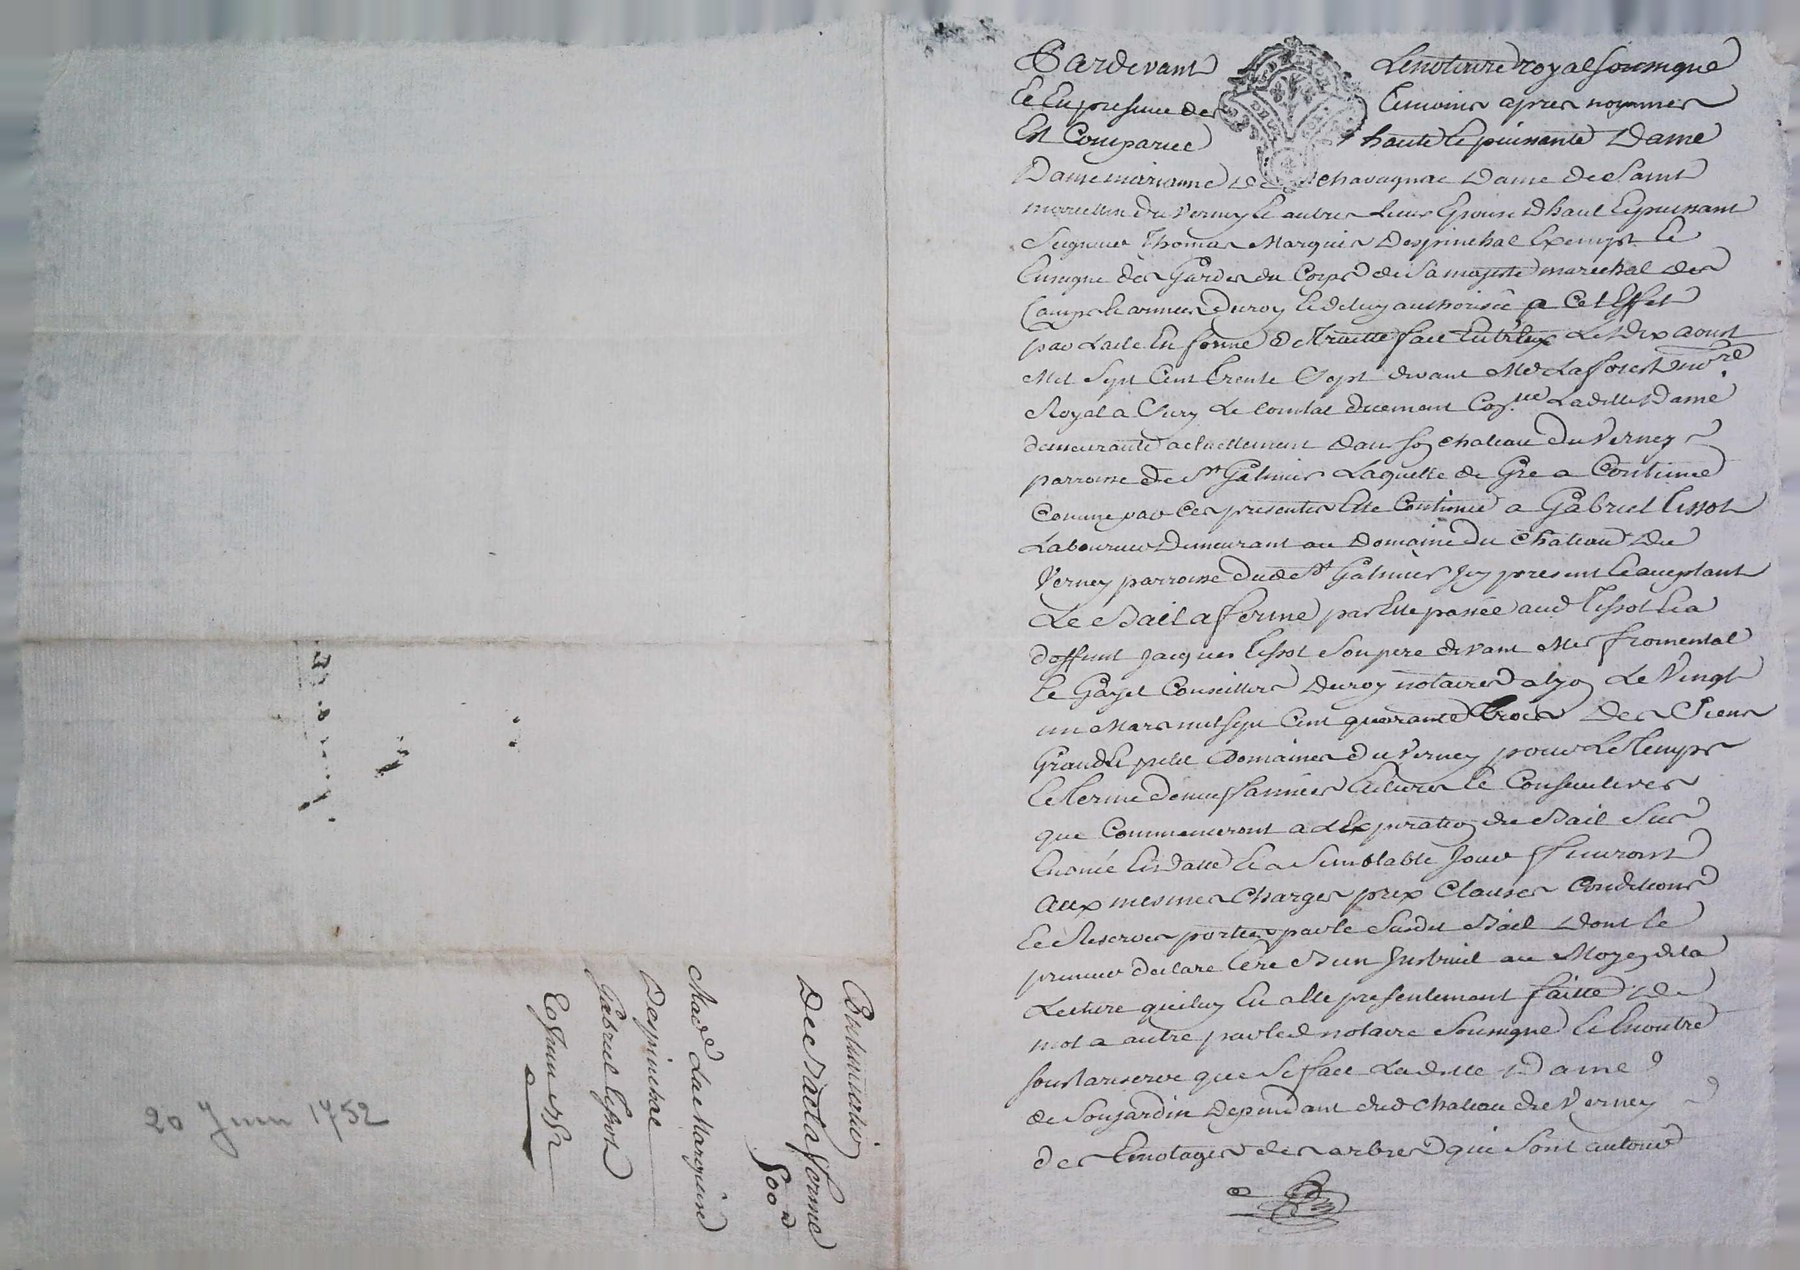 Pardevant Le notaire royal soussigné
Et En presence des temoins apres nommes
Est Comparue haute et puissante Dame
Dame marianne De chavagnac Dame de Saint
marcellin du Verney et autres lieux Epouse d haut et puissant
Seigneur Thomas Marquis Despinchal Exempt Et
Enseigne des Gardes du Corps de Sa majesté marechal des
Camps et armées du roy et de luy authorisée a Cet Effet
par Lacte En forme de Traitté fait Entr'eux Le Dix aoust
Mil Sept Cent trente Sept devant Me Laforest no.re
Royal a Sury Le Comtal duement Coll.né Laditte Dame
demeurante actuellement dans son chateau du Verney
parroisse de St Galmier Laquelle de Gré a Continué
Comme par Ces presentes Elle Continue a Gabriel tissot
Laboureur Demeurant au Domaine du Chateau Du
Verney parroisse dud St Galmier Icy present et acceptant
Le Bail a ferme par Elle passée aud tissot Et a
deffunt Jacques tissot Son pere devant Mes fromental
et Gayet Conseillers Du roy notaires a lyon Le Vingt
un Mars mil sept Cent quarante trois Des Siens
Grand et petit Domaines du Verney pour Le temps
et terme de neuf années Entieres et Consecutives
que Commenceront a L'Expiration du Bail Sus
Enoncé Et datté Et a Semblable Jour finiront
Aux mesmes Charges prix Clauses Conditions
et Reserves portées par le Susdit Bail Dont le
preneur declare Etre Bien Instruit au Moyen de la
Lecture qui luy En a Eté presentement faitte De
mot a autre par led notaire Soussigné Et En outre
sous la reserve que Se fait Laditte Dame
de Son jardin Dependant dud Chateau du Verney
des Emotages des arbres qui Sont autour
Continuation
De Bail a ferme
500 #
Mad.e La Marquise
Despinchal
Gabriel tissot
20 Juin 1752